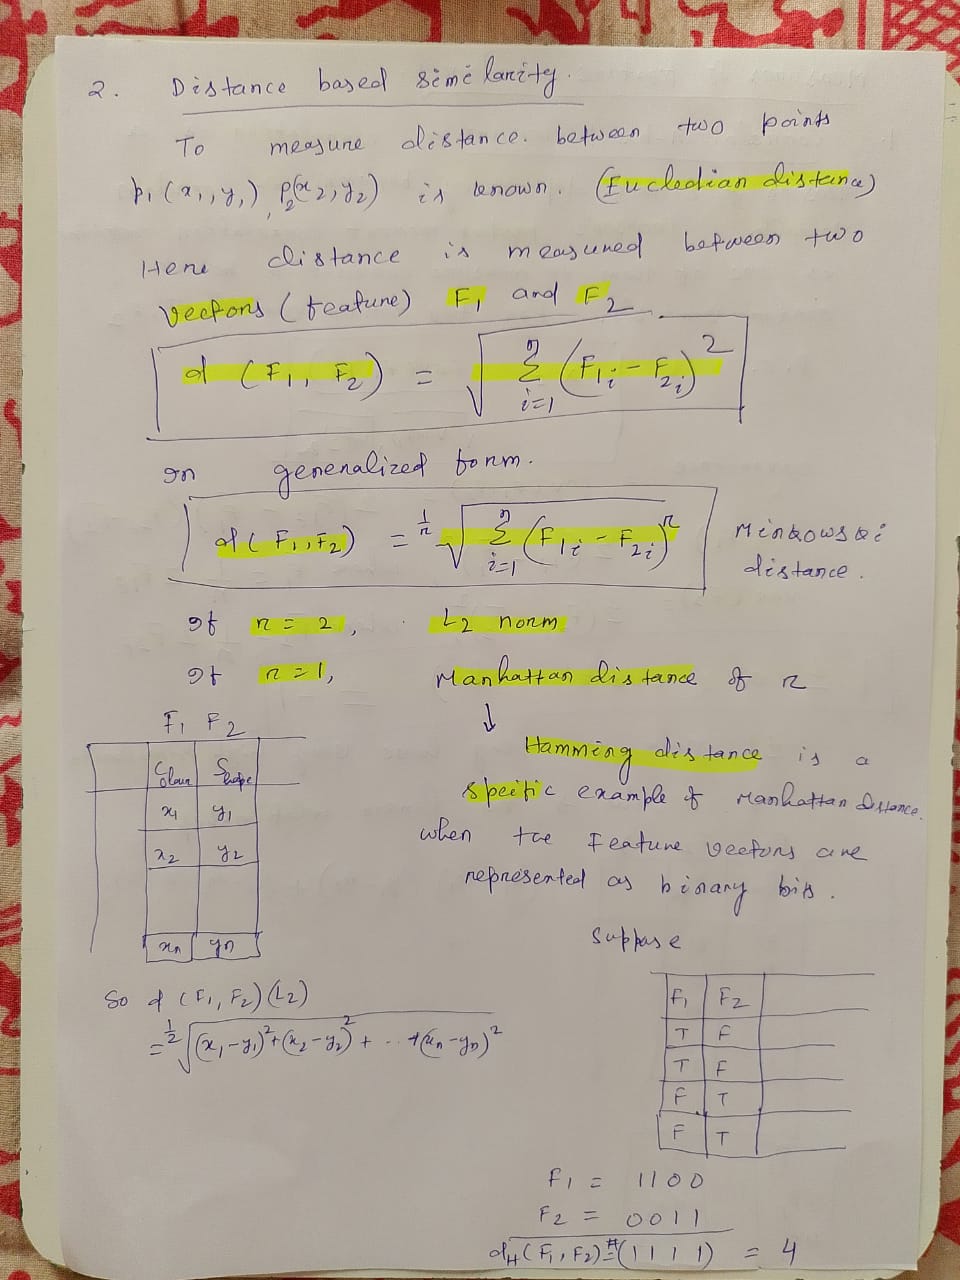 2. Distance based similarity.
To measure distance. between two points
p₁(x₁,y₁), P₂(x₂,y₂) is known. (Eucledian distance)
Here distance is measured between two
vectors (feature) F₁ and F₂
d (F₁, F₂) = √ Σ_{i=1}^{n} (F₁ᵢ - F₂ᵢ)²
In generalized form.
d(F₁, F₂) = ^{1/r}√ Σ_{i=1}^{n} (F₁ᵢ - F₂ᵢ)^r Minkowski
distance.
If r = 2, L₂ norm
If r = 1, Manhattan distance of r
↓
Hamming distance is a
specific example of Manhattan Distance.
when the Feature vectors are
represented as binary bits.
F₁ F₂
Colour Shape
x₁ y₁
x₂ y₂
xₙ yₙ
So d (F₁, F₂) (L₂)
= ^{1/2}√ (x₁-y₁)² + (x₂-y₂)² + .. + (xₙ-yₙ)²
Suppose
F₁ F₂
T F
T F
F T
F T
F₁ = 1100
F₂ = 0011
d_H (F₁, F₂) = #(1111) = 4